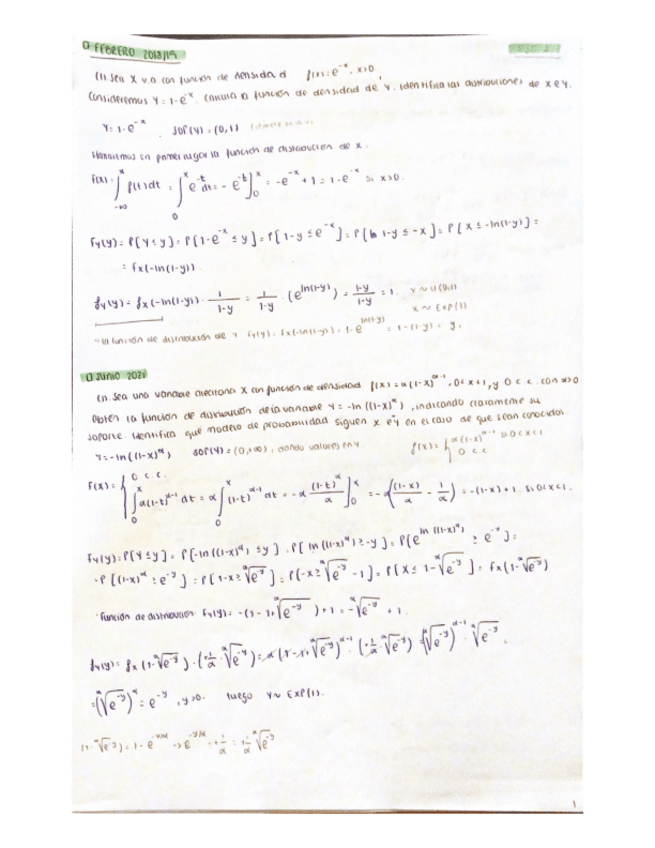 FEBRERO 2018/19
(1). Sea X v.a con función de densidad f(x)=e^{-x}, x>0.
Consideremos Y = 1-e^{-x}. Calcula la función de densidad de Y. Identifica las distribuciones de X e Y.
Y = 1-e^{-x}. SOP(Y) = (0,1)
en primer lugar la función de distribución de x.
F(x) = ∫_{-∞}^{x} f(t)dt = ∫_0^x e^{-t}dt = -e^{-t}]_0^x = -e^{-x} + 1 = 1-e^{-x} si x>0.
F_Y(y) = P[Y ≤ y] = P[1-e^{-x} ≤ y] = P[1-y ≤ e^{-x}] = P[ln 1-y ≤ -x] = P[X ≤ -ln(1-y)] =
= Fx(-ln(1-y)).
f_Y(y) = fx(-ln(1-y)) · 1/(1-y) = 1/(1-y) · (e^{ln(1-y)}) = (1-y)/(1-y) = 1. Y ~ U(0,1)
X ~ EXP(1)
la función de distribución de Y F_Y(y) = Fx(-ln(1-y)) = 1-e^{ln(1-y)} = 1-(1-y) = y.
JUNIO 2021
(1). Sea una variable aleatoria X con función de densidad f(x) = α(1-x)^{α-1}, 0<x<1, y 0 c.c. con α>0
Obtén la función de distribución de la variable Y = -ln((1-x)^α), indicando claramente su
soporte. Identifica que modelo de probabilidad siguen X e Y en el caso de que sean conocidos
Y = -ln((1-x)^α) SOP(Y) = (0,+∞), dando valores en Y. f(x) = { α(1-x)^{α-1} si 0<x<1
0 c.c
F(x) = { 0 c.c.
∫_0^x α(1-t)^{α-1} dt = α ∫_0^x (1-t)^{α-1} dt = -α (1-t)^α/α ]_0^x = -α((1-x)/α - 1/α) = -(1-x)+1 si 0<x<1.
F_Y(y) = P[Y ≤ y] = P[-ln((1-x)^α) ≤ y] = P[ln((1-x)^α) ≥ -y] = P[e^{ln((1-x)^α)} ≥ e^{-y}] =
= P[(1-x)^α ≥ e^{-y}] = P[1-x ≥ ᵅ√e^{-y}] = P[-x ≥ ᵅ√e^{-y} - 1] = P[X ≤ 1-ᵅ√e^{-y}] = Fx(1-ᵅ√e^{-y})
· Función de distribución F_Y(y) = -(1-1+ᵅ√e^{-y}) + 1 = -ᵅ√e^{-y} + 1.
f_Y(y) = fx(1-ᵅ√e^{-y}) · (1/α ᵅ√e^{-y}) = α(1-1+ᵅ√e^{-y})^{α-1} · (1/α ᵅ√e^{-y}) = (ᵅ√e^{-y})^{α-1} · ᵅ√e^{-y} =
= (ᵅ√e^{-y})^α = e^{-y}, y>0. Luego Y ~ EXP(1).
(1-ᵅ√e^{-y}) = 1-e^{-y/α} → e^{-y/α} · +1/α = +1/α ᵅ√e^{-y}
1